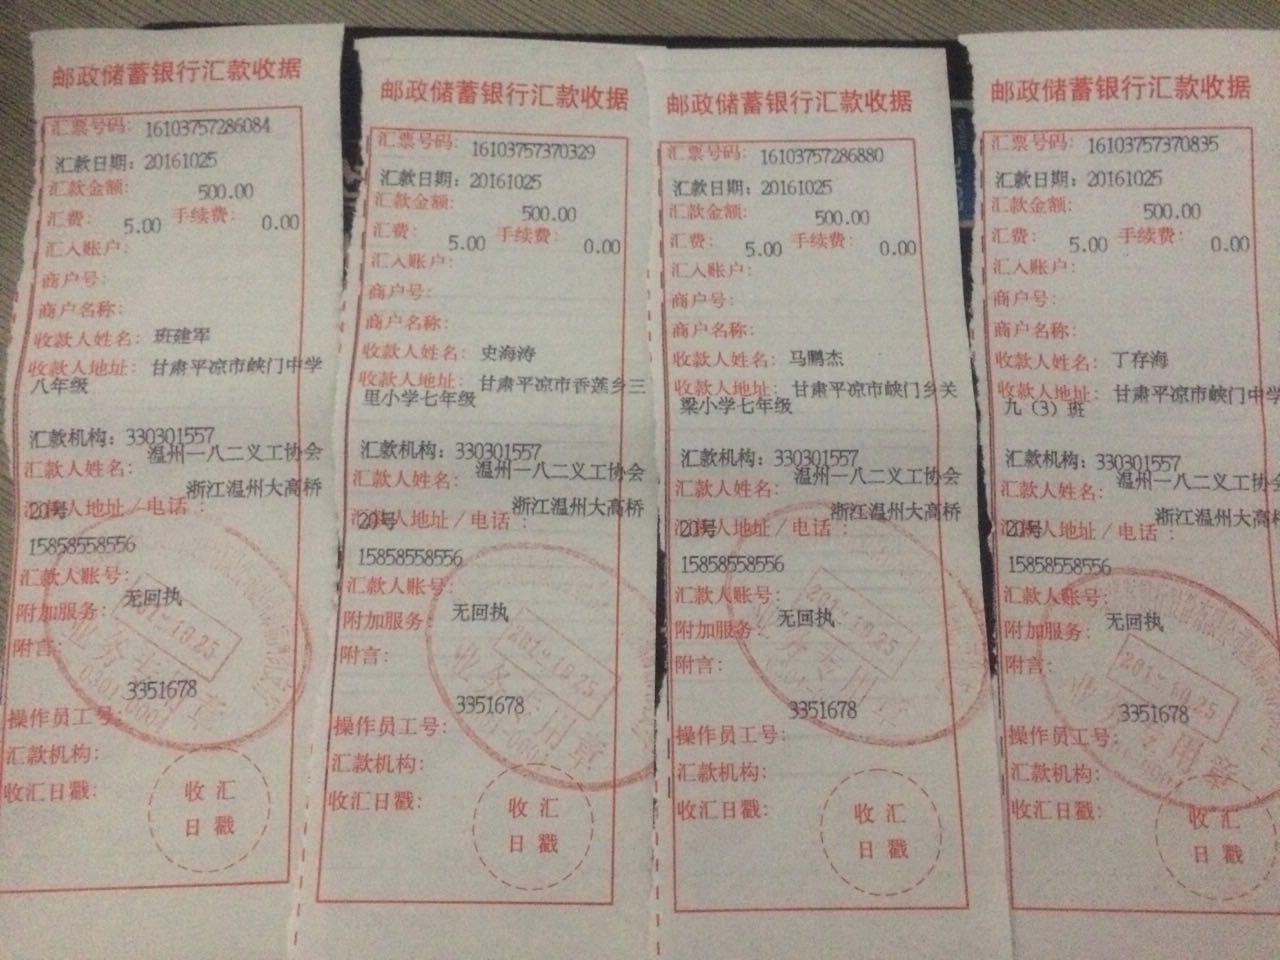 邮政储蓄银行汇款收据
汇票号码：16103757286084
汇款日期：20161025
汇款金额： 500.00
汇费： 5.00 手续费： 0.00
汇入账户：
商户号：
商户名称：
收款人姓名：班建军
收款人地址：甘肃平凉市峡门中学
八年级
汇款机构：330301557
汇款人姓名：温州一八二义工协会
汇款人地址／电话：浙江温州大高桥
20号
15858558556
汇款人账号：
附加服务：无回执
附言：
3351678
操作员工号：
汇款机构：
收汇日戳：
收汇
日戳
业务专用章
邮政储蓄银行汇款收据
汇票号码：16103757370329
汇款日期：20161025
汇款金额： 500.00
汇费： 5.00 手续费： 0.00
汇入账户：
商户号：
商户名称：
收款人姓名：史海涛
收款人地址：甘肃平凉市香莲乡三
里小学七年级
汇款机构：330301557
汇款人姓名：温州一八二义工协会
汇款人地址／电话：浙江温州大高桥
20号
15858558556
汇款人账号：
附加服务：无回执
附言：
3351678
操作员工号：
汇款机构：
收汇日戳：
收汇
日戳
业务专用章
邮政储蓄银行汇款收据
汇票号码：16103757286880
汇款日期：20161025
汇款金额： 500.00
汇费： 5.00 手续费： 0.00
汇入账户：
商户号：
商户名称：
收款人姓名：马鹏杰
收款人地址：甘肃平凉市峡门乡关
梁小学七年级
汇款机构：330301557
汇款人姓名：温州一八二义工协会
汇款人地址／电话：浙江温州大高桥
20号
15858558556
汇款人账号：
附加服务：无回执
附言：
3351678
操作员工号：
汇款机构：
收汇日戳：
收汇
日戳
邮政储蓄银行汇款收据
汇票号码：16103757370835
汇款日期：20161025
汇款金额： 500.00
汇费： 5.00 手续费： 0.00
汇入账户：
商户号：
商户名称：
收款人姓名：丁存海
收款人地址：甘肃平凉市峡门中学
九（3）班
汇款机构：330301557
汇款人姓名：温州一八二义工协
汇款人地址／电话：浙江温州大高
20号
15858558556
汇款人账号：
附加服务：无回执
附言：
3351678
操作员工号：
汇款机构：
收汇日戳：
收汇
日戳
业务专用章